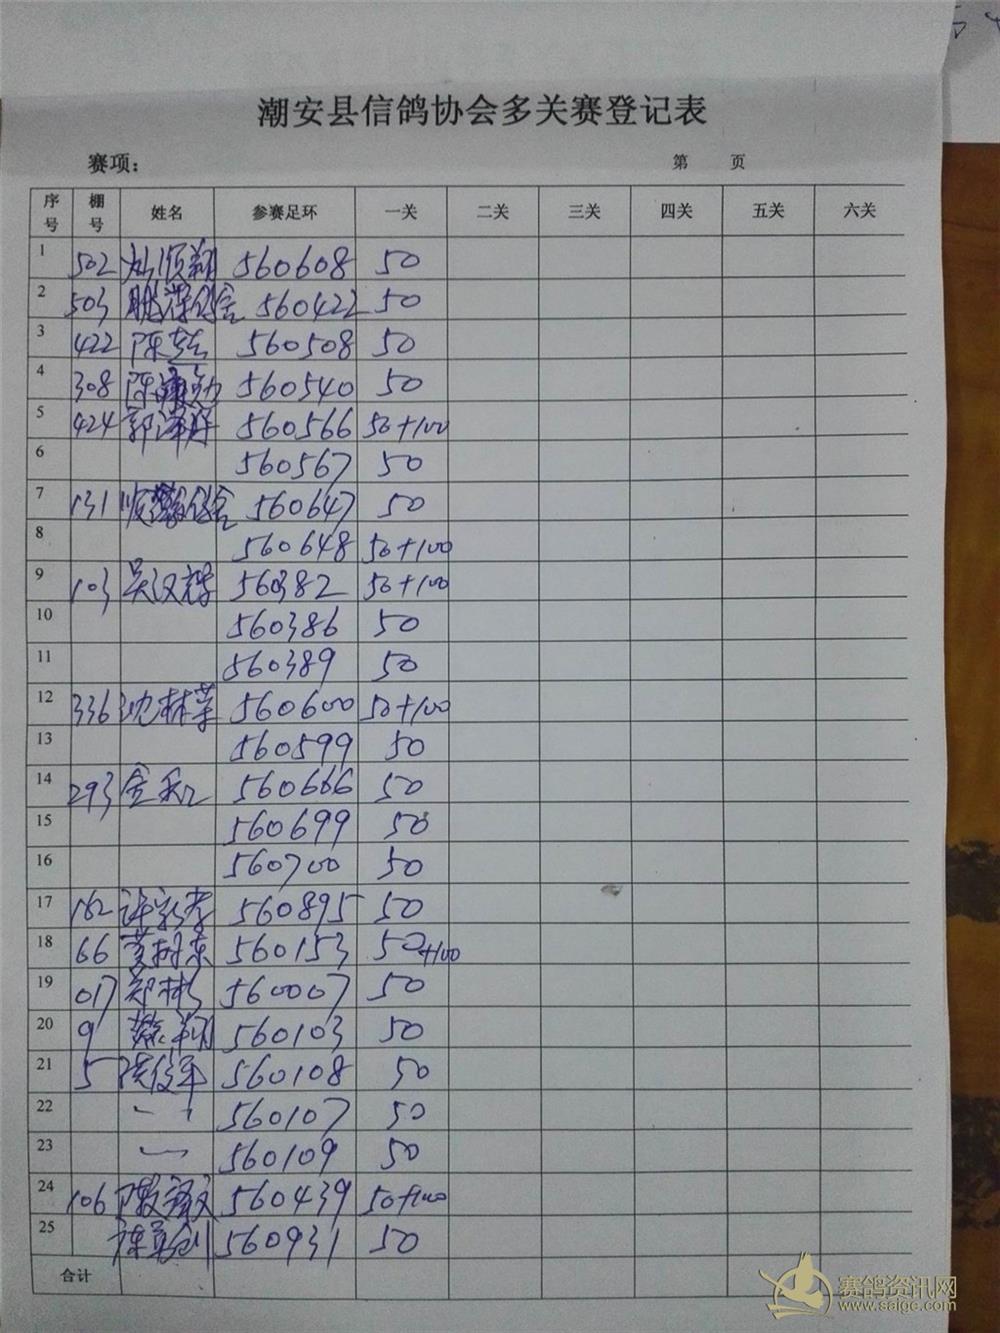 潮安县信鸽协会多关赛登记表
赛项： 第 页
序号 棚号 姓名 参赛足环 一关 二关 三关 四关 五关 六关
1 502 560608 50
2 503 560422 50
3 422 陈 560508 50
4 308 陈 560540 50
5 424 郭泽 560566 50+100
6 560567 50
7 131 顺 560647 50
8 560648 50+100
9 103 吴汉 560382 50+100
10 560386 50
11 560389 50
12 336 沈林 560600 50+100
13 560599 50
14 293 金 560666 50
15 560699 50
16 560700 50
17 182 许 560895 50
18 66 黄树东 560153 50+100
19 017 郑彬 560007 50
20 9 翔 560103 50
21 5 俊 560108 50
22 560107 50
23 560109 50
24 106 陈 560439 50+100
25 陈 560931 50
合计
赛鸽资讯网
www.saigc.com